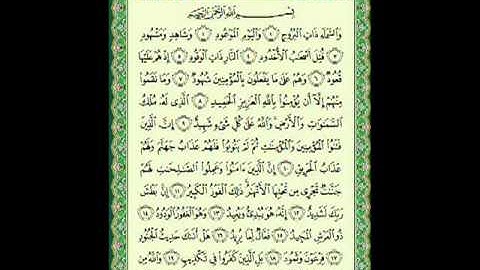 بِسْمِ اللَّهِ الرَّحْمَٰنِ الرَّحِيمِ
وَالسَّمَاءِ ذَاتِ الْبُرُوجِ ١ وَالْيَوْمِ الْمَوْعُودِ ٢ وَشَاهِدٍ وَمَشْهُودٍ
٣ قُتِلَ أَصْحَابُ الْأُخْدُودِ ٤ النَّارِ ذَاتِ الْوَقُودِ ٥ إِذْ هُمْ عَلَيْهَا
قُعُودٌ ٦ وَهُمْ عَلَىٰ مَا يَفْعَلُونَ بِالْمُؤْمِنِينَ شُهُودٌ ٧ وَمَا نَقَمُوا
مِنْهُمْ إِلَّا أَن يُؤْمِنُوا بِاللَّهِ الْعَزِيزِ الْحَمِيدِ ٨ الَّذِي لَهُ مُلْكُ
السَّمَاوَاتِ وَالْأَرْضِ وَاللَّهُ عَلَىٰ كُلِّ شَيْءٍ شَهِيدٌ ٩ إِنَّ الَّذِينَ
فَتَنُوا الْمُؤْمِنِينَ وَالْمُؤْمِنَاتِ ثُمَّ لَمْ يَتُوبُوا فَلَهُمْ عَذَابُ جَهَنَّمَ وَلَهُمْ
عَذَابُ الْحَرِيقِ ١٠ إِنَّ الَّذِينَ آمَنُوا وَعَمِلُوا الصَّالِحَاتِ لَهُمْ
جَنَّاتٌ تَجْرِي مِن تَحْتِهَا الْأَنْهَارُ ذَٰلِكَ الْفَوْزُ الْكَبِيرُ ١١ إِنَّ بَطْشَ
رَبِّكَ لَشَدِيدٌ ١٢ إِنَّهُ هُوَ يُبْدِئُ وَيُعِيدُ ١٣ وَهُوَ الْغَفُورُ الْوَدُودُ ١٤
ذُو الْعَرْشِ الْمَجِيدُ ١٥ فَعَّالٌ لِّمَا يُرِيدُ ١٦ هَلْ أَتَاكَ حَدِيثُ الْجُنُودِ
١٧ فِرْعَوْنَ وَثَمُودَ ١٨ بَلِ الَّذِينَ كَفَرُوا فِي تَكْذِيبٍ ١٩ وَاللَّهُ مِن